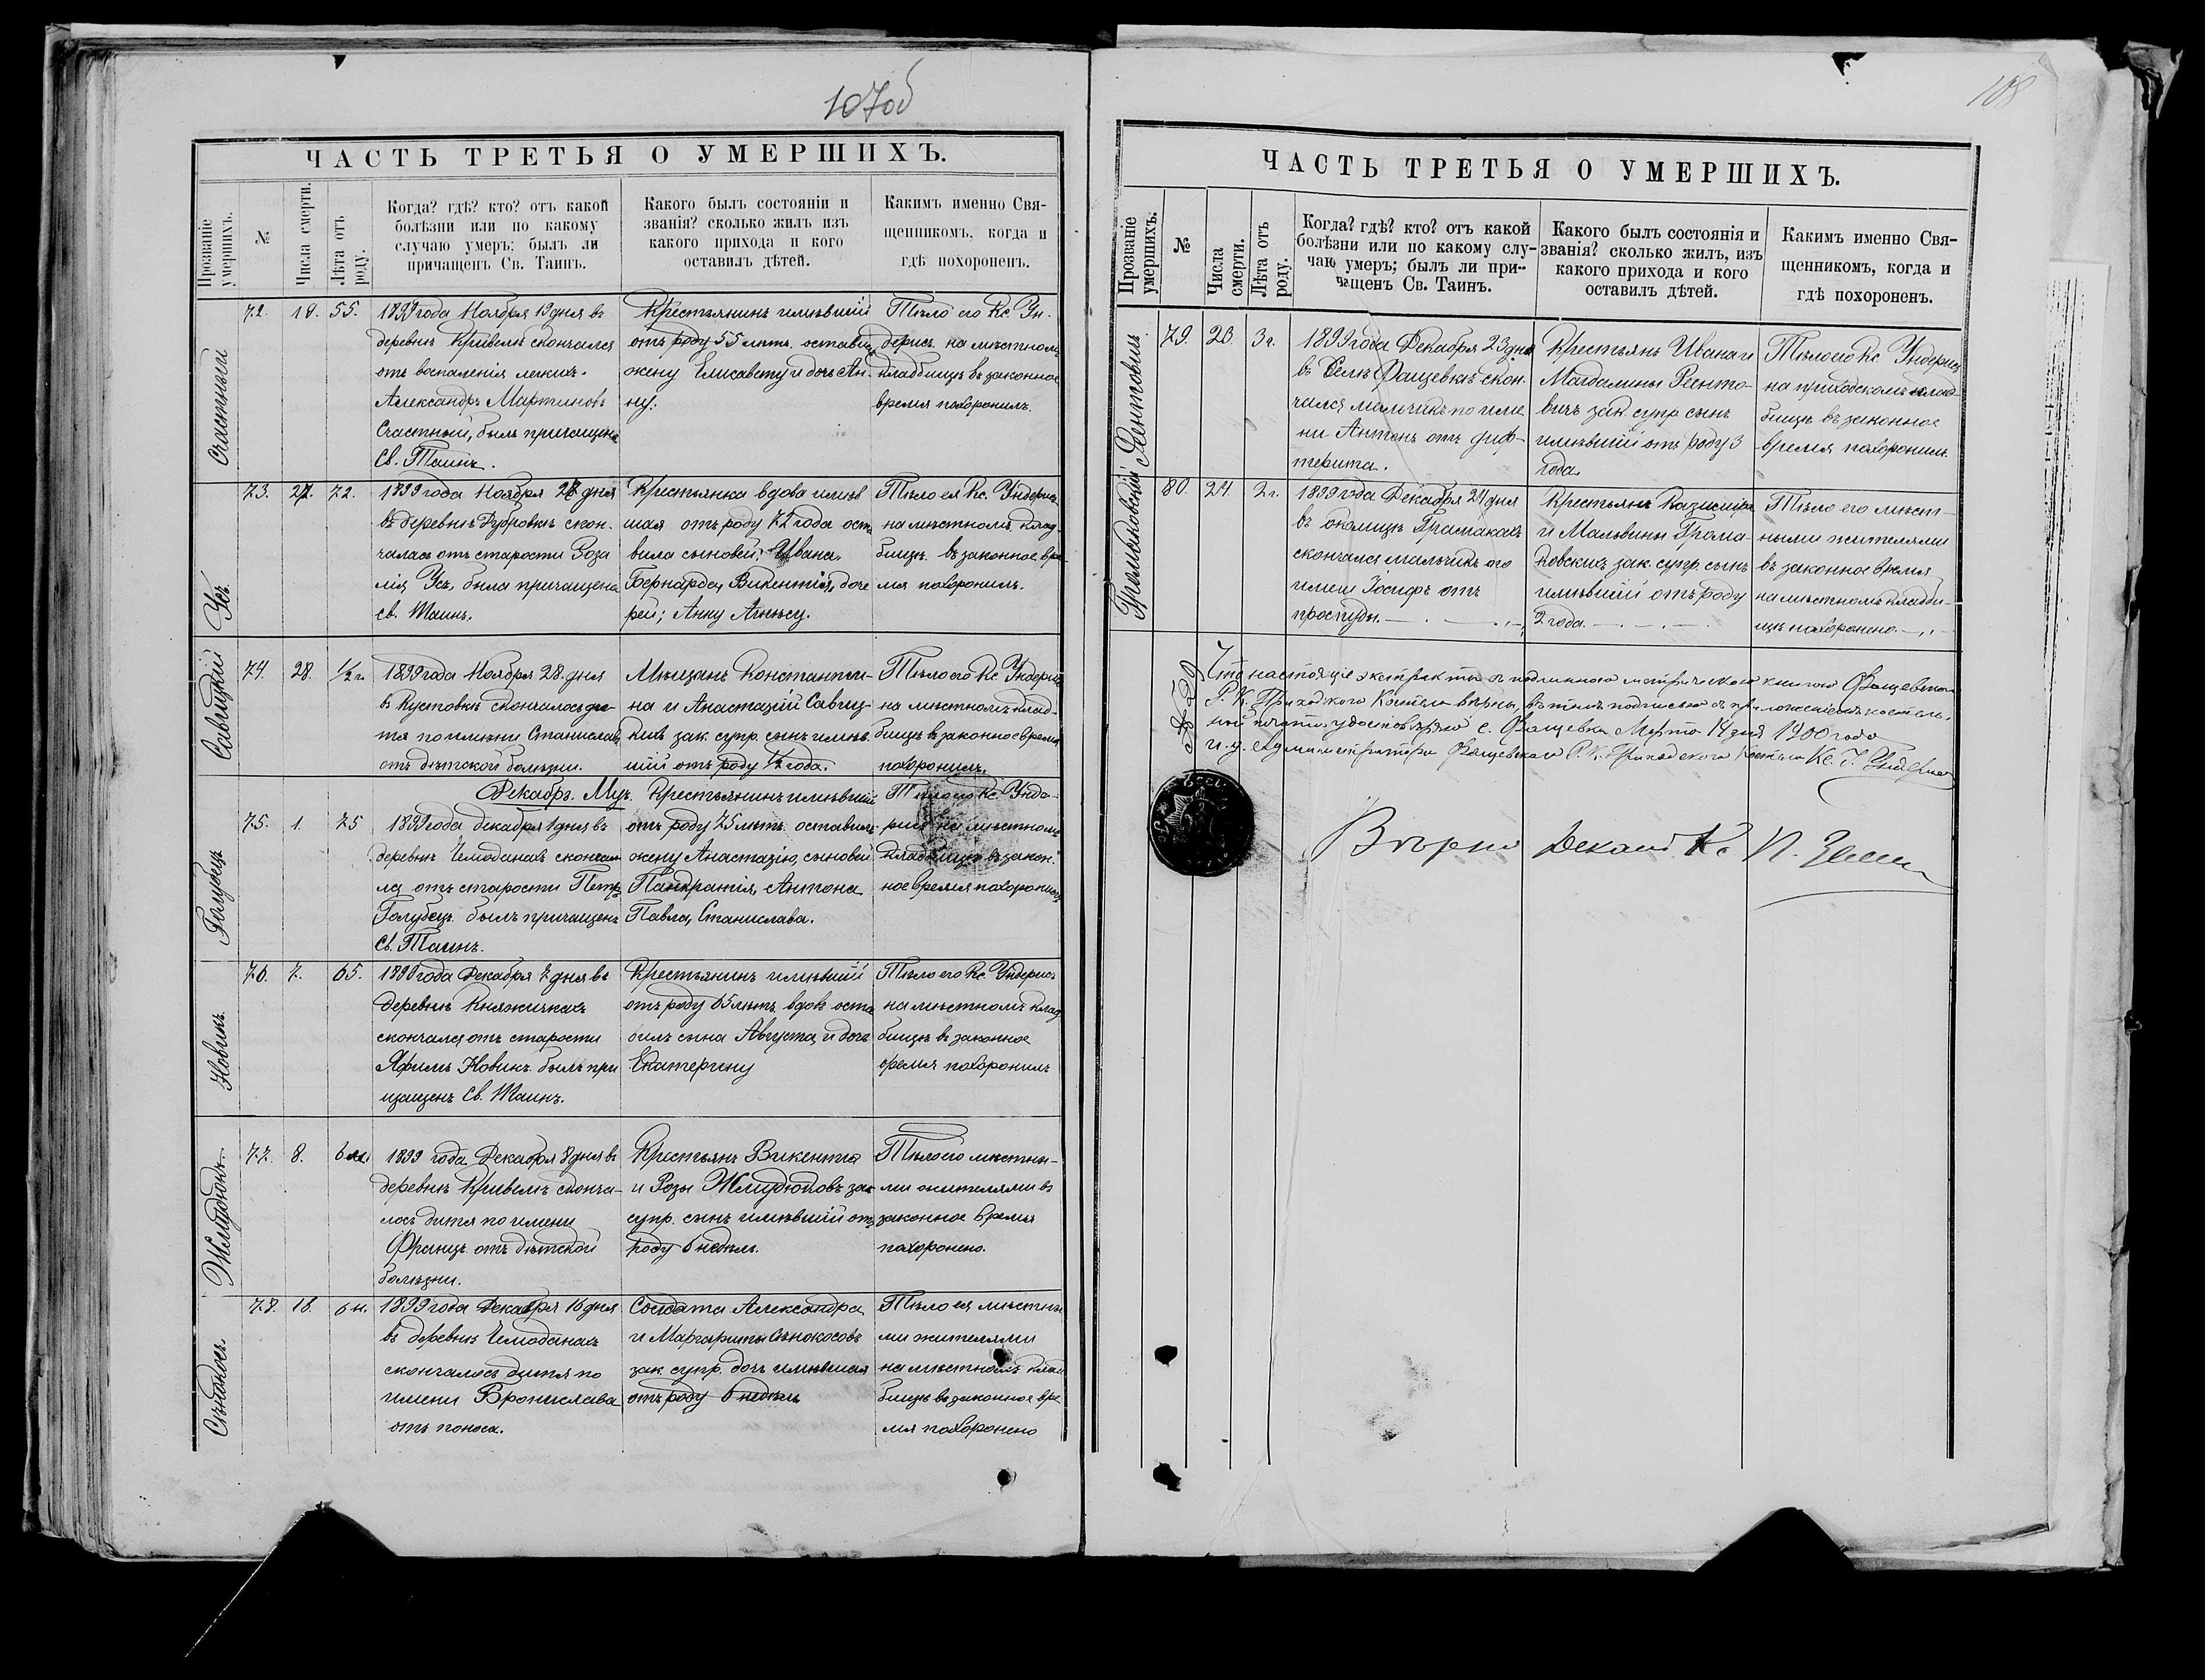 107об
ЧАСТЬ ТРЕТЬЯ О УМЕРШИХЪ.
Прозваніе умершихъ.
№
Числа смерти.
Лѣта отъ роду.
Когда? гдѣ? кто? отъ какой
болѣзни или по какому
случаю умеръ; былъ ли
причащенъ Св. Таинъ.
Какого былъ состоянія и
званія? сколько жилъ изъ
какого прихода и кого
оставилъ дѣтей.
Какимъ именно Свя-
щенникомъ, когда и
гдѣ похороненъ.
Счастный
72. 19. 55.
1899 года Ноября 19 дня въ
деревнѣ Кривелѣ скончался
отъ воспаленія легкихъ.
Александръ Мартиновъ
Счастный, былъ причащенъ
Св. Таинъ.
Крестьянинъ имѣвшій
отъ роду 55 лѣтъ. оставилъ
жену Елисавету и дочь Ан-
ну.
Тѣло его Кс. Ун-
дерисъ. на мѣстномъ
кладбищѣ въ законное
время похоронилъ.
Усъ
73. 27. 72.
1899 года Ноября 27 дня
въ деревнѣ Дубровкѣ скон-
чалась отъ старости Роза
лія Усъ, была причащена
св. Таинъ.
Крестьянка вдова имѣв
шая отъ роду 72 года оста
вила сыновей: Ивана,
Бернарда, Викентія, доче
рей; Анну Агнѣсу.
Тѣло ея Кс. Ундерисъ
на мѣстномъ клад
бищѣ въ законное вре
мя похоронилъ.
Савицкій
74. 28. 1/2 г.
1899 года Ноября 28. дня
въ Кустовкѣ скончалось ди-
тя по имени Станиславъ
отъ дѣтской болѣзни.
Мѣщанъ Константи-
на и Анастазіи Савиц-
кихъ зак. супр. сынъ имѣв.
шій отъ роду 1/2 года.
Тѣло его Кс. Ундерисъ
на мѣстномъ клад-
бищѣ въ законное время
похоронилъ.
Декабрь. Мць.
Голубецъ
75. 1. 75
1899 года декабря 1 дня въ
деревнѣ Чемоданахъ скончал
ся отъ старости Петръ
Голубецъ. былъ причащенъ
Св. Таинъ.
Крестьянинъ имѣвшій
отъ роду 75 лѣтъ. оставилъ
жену Анастазію, сыновей
Панкратія, Антона
Павла, Станислава.
Тѣло его Кс. Унде-
рисъ на мѣстномъ
кладбищѣ въ закон.
ное время похоронилъ
Новикъ.
76. 7. 65.
1899 года Декабря 7 дня въ
деревнѣ Княжичкахъ
скончался отъ старости
Яфимъ Новикъ. былъ при
чащенъ Св. Таинъ.
Крестьянинъ имѣвшій
отъ роду 65 лѣтъ. вдовъ оста
вилъ сына Августа и дочь
Екатерину
Тѣло его Кс. Ундерисъ
на мѣстномъ клад
бищѣ въ законное
время похоронилъ
77. 8.
1899 года Декабря 8 дня въ
деревнѣ Кривелѣ сконча-
лось дитя по имени
Францъ отъ дѣтской
болѣзни.
Крестьянъ Викентія
и Розы зак
супр. сынъ имѣвшій отъ
роду 6 недѣль.
Тѣло его мѣстны-
ми жителями въ
законное время
похоронено.
Сѣнокосъ.
78. 16. 6 н.
1899 года Декабря 16 дня
въ деревнѣ Чемоданахъ
скончалось дитя по
имени Брониславa
отъ поноса.
Солдата Александра
и Маргариты Сѣнокосовъ
зак. супр. дочь имѣвшая
отъ роду 6 недѣль
Тѣло ея мѣстны
ми жителями
на мѣстномъ клад
бищѣ въ законное вре
мя похоронено
108
ЧАСТЬ ТРЕТЬЯ О УМЕРШИХЪ.
Прозваніе умершихъ.
№
Числа смерти.
Лѣта отъ роду.
Когда? гдѣ? кто? отъ какой
болѣзни или по какому слу-
чаю умеръ; былъ ли при-
чащенъ Св. Таинъ.
Какого былъ состоянія и
званія? сколько жилъ, изъ
какого прихода и кого
оставилъ дѣтей.
Какимъ именно Свя-
щенникомъ, когда и
гдѣ похороненъ.
Рентовичъ
79. 23. 3 г.
1899 года Декабря 23 дня
въ Селѣ Фащевкѣ скон-
чался мальчикъ по име
ни Антонъ отъ диф-
терита.
Крестьянъ Ивана и
Магдалины Ренто-
вичъ зак. супр. сынъ
имѣвшій отъ роду 3
года.
Тѣло его Кс. Ундерисъ
на приходскомъ клад-
бищѣ въ законное
время похоронилъ
Громаковскій
80. 24. 2 г.
1899 года Декабря 24 дня
въ околицѣ Грамакахъ
скончался мальчикъ его
имени Іосифъ отъ
простуды.
Крестьянъ Казимира
и Мальвины Грома-
ковскихъ зак. супр. сынъ
имѣвшій отъ роду
2 года.
Тѣло его мѣст-
ными жителями
въ законное время
на мѣстномъ кладби-
щѣ похоронено.
№ 50
Что настоящіе экстракты съ подлинною метрическою книгою Фащевскаго
Р. К. Приходскаго Костела вѣрны, въ томъ подписью съ приложеніемъ костель-
ной печати удостовѣряю с. Фащевка Марта 14 дня 1900 года
и. д. Администратора Фащевскаго Р. К. Приходскаго Костела Кс. І. Ундерисъ
Вѣрно Деканъ Кс П.